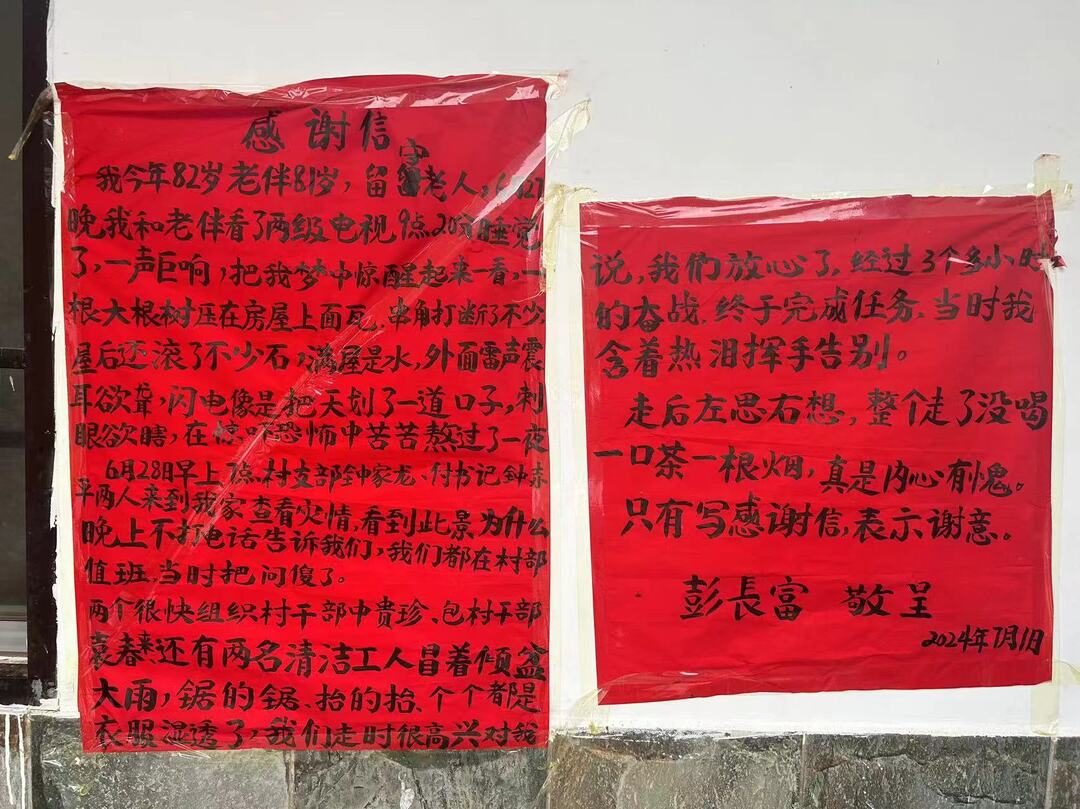 感谢信
我今年82岁老伴81岁，留守老人，6.27
晚我和老伴看了两级电视9点20分睡觉
了，一声巨响，把我梦中惊醒起来一看，一
根大根树压在房屋上面瓦、串角打断了不少
屋后还滚了不少石，满屋是水，外面雷声震
耳欲聋，闪电像是把天划了一道口子，刺
眼欲瞎，在惊吓恐怖中苦苦熬过了一夜
6月28日早上7点村支部钟家龙、付书记钟东
平两人来到我家查看灾情，看到此景为什么
晚上不打电话告诉我们，我们都在村部
值班，当时把问傻了。
两个很快组织村干部中贵珍、包村干部
袁春来还有两名清洁工人冒着倾盆
大雨，锯的锯、抬的抬、个个都是
衣服湿透了，我们走时很高兴对我
说，我们放心了，经过3个多小时
的奋战、终于完成任务、当时我
含着热泪挥手告别。
走后左思右想，整个走了没喝
一口茶一根烟，真是内心有愧。
只有写感谢信，表示谢意。
彭長富 敬呈
2024年7月1日